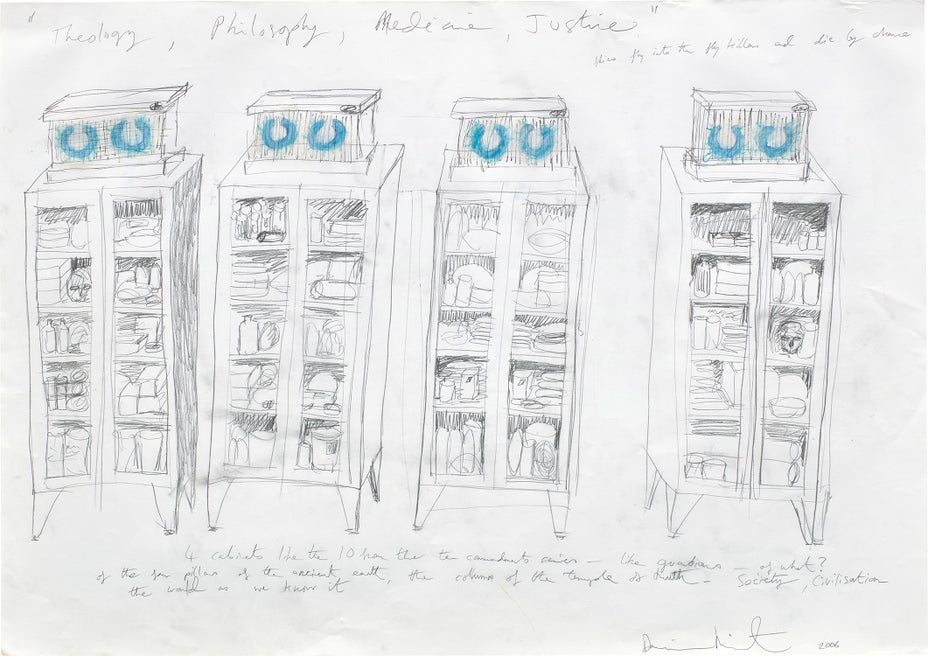 "Theology, Philosophy, Medicine, Justice"
flies fly into the fly killers and die by chance
4 cabinets like the 10 from the ten comandments series — like guardians — of what?
of the four pillars of the ancient earth, the columns of the temple of truth - Society, Civilisation
the world as we know it
2006